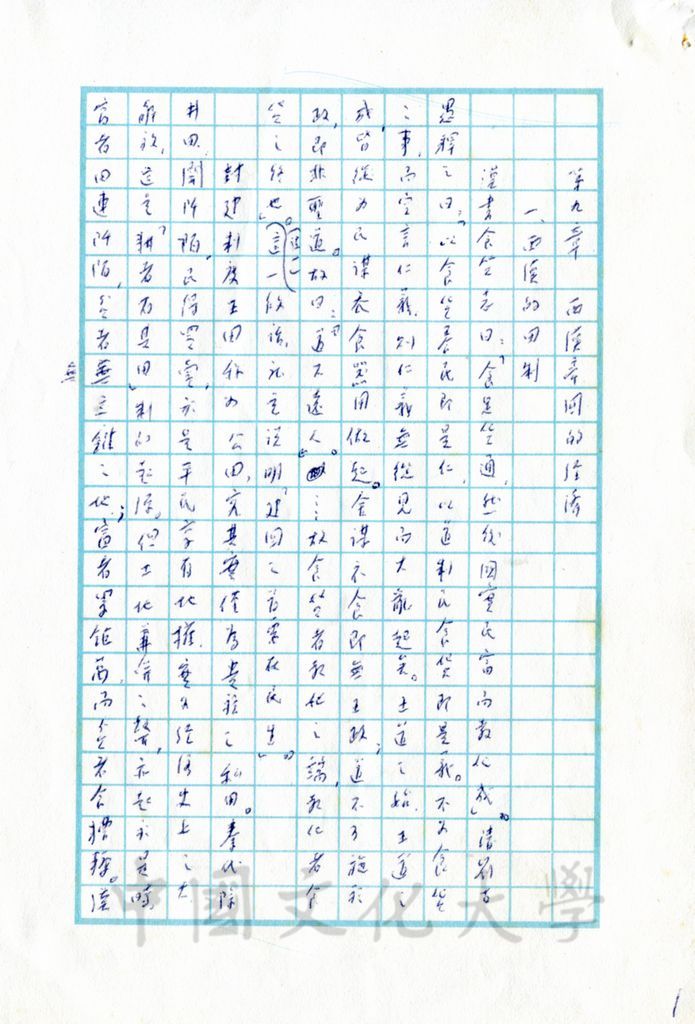 第九章 西漢帝國的經濟
一、西漢的田制
漢書食貨志曰：「食足貨通，然後國實民富而教化成」。清劉
愚釋之曰：「以食貨養民即是仁，以道制民食貨即是義。不為食貨
之事，而空言仁義，則仁義無從見而大亂起矣。王道之始，王道之
成，皆從為民謀衣食器用做起。舍謀衣食即無王政；道不可施於
政，即非聖道。故曰：『道不遠人』。故食貨者教化之端，教化者食
貨之終也」。（註一）這一段話，充分說明「建國之首要在民生」。
封建制度王田名為公田，究其實僅為貴族之私田。秦代除
井田，開阡陌，民得買賣，於是平民享有地權，實為經濟史上之大
解放，這是「耕者有其田」制的起源。但土地兼併之弊，亦起於是時，
富者田連阡陌，貧者無立錐之地；富者累鉅萬，而貧者食糟糠。漢
無
1
中國文化大學